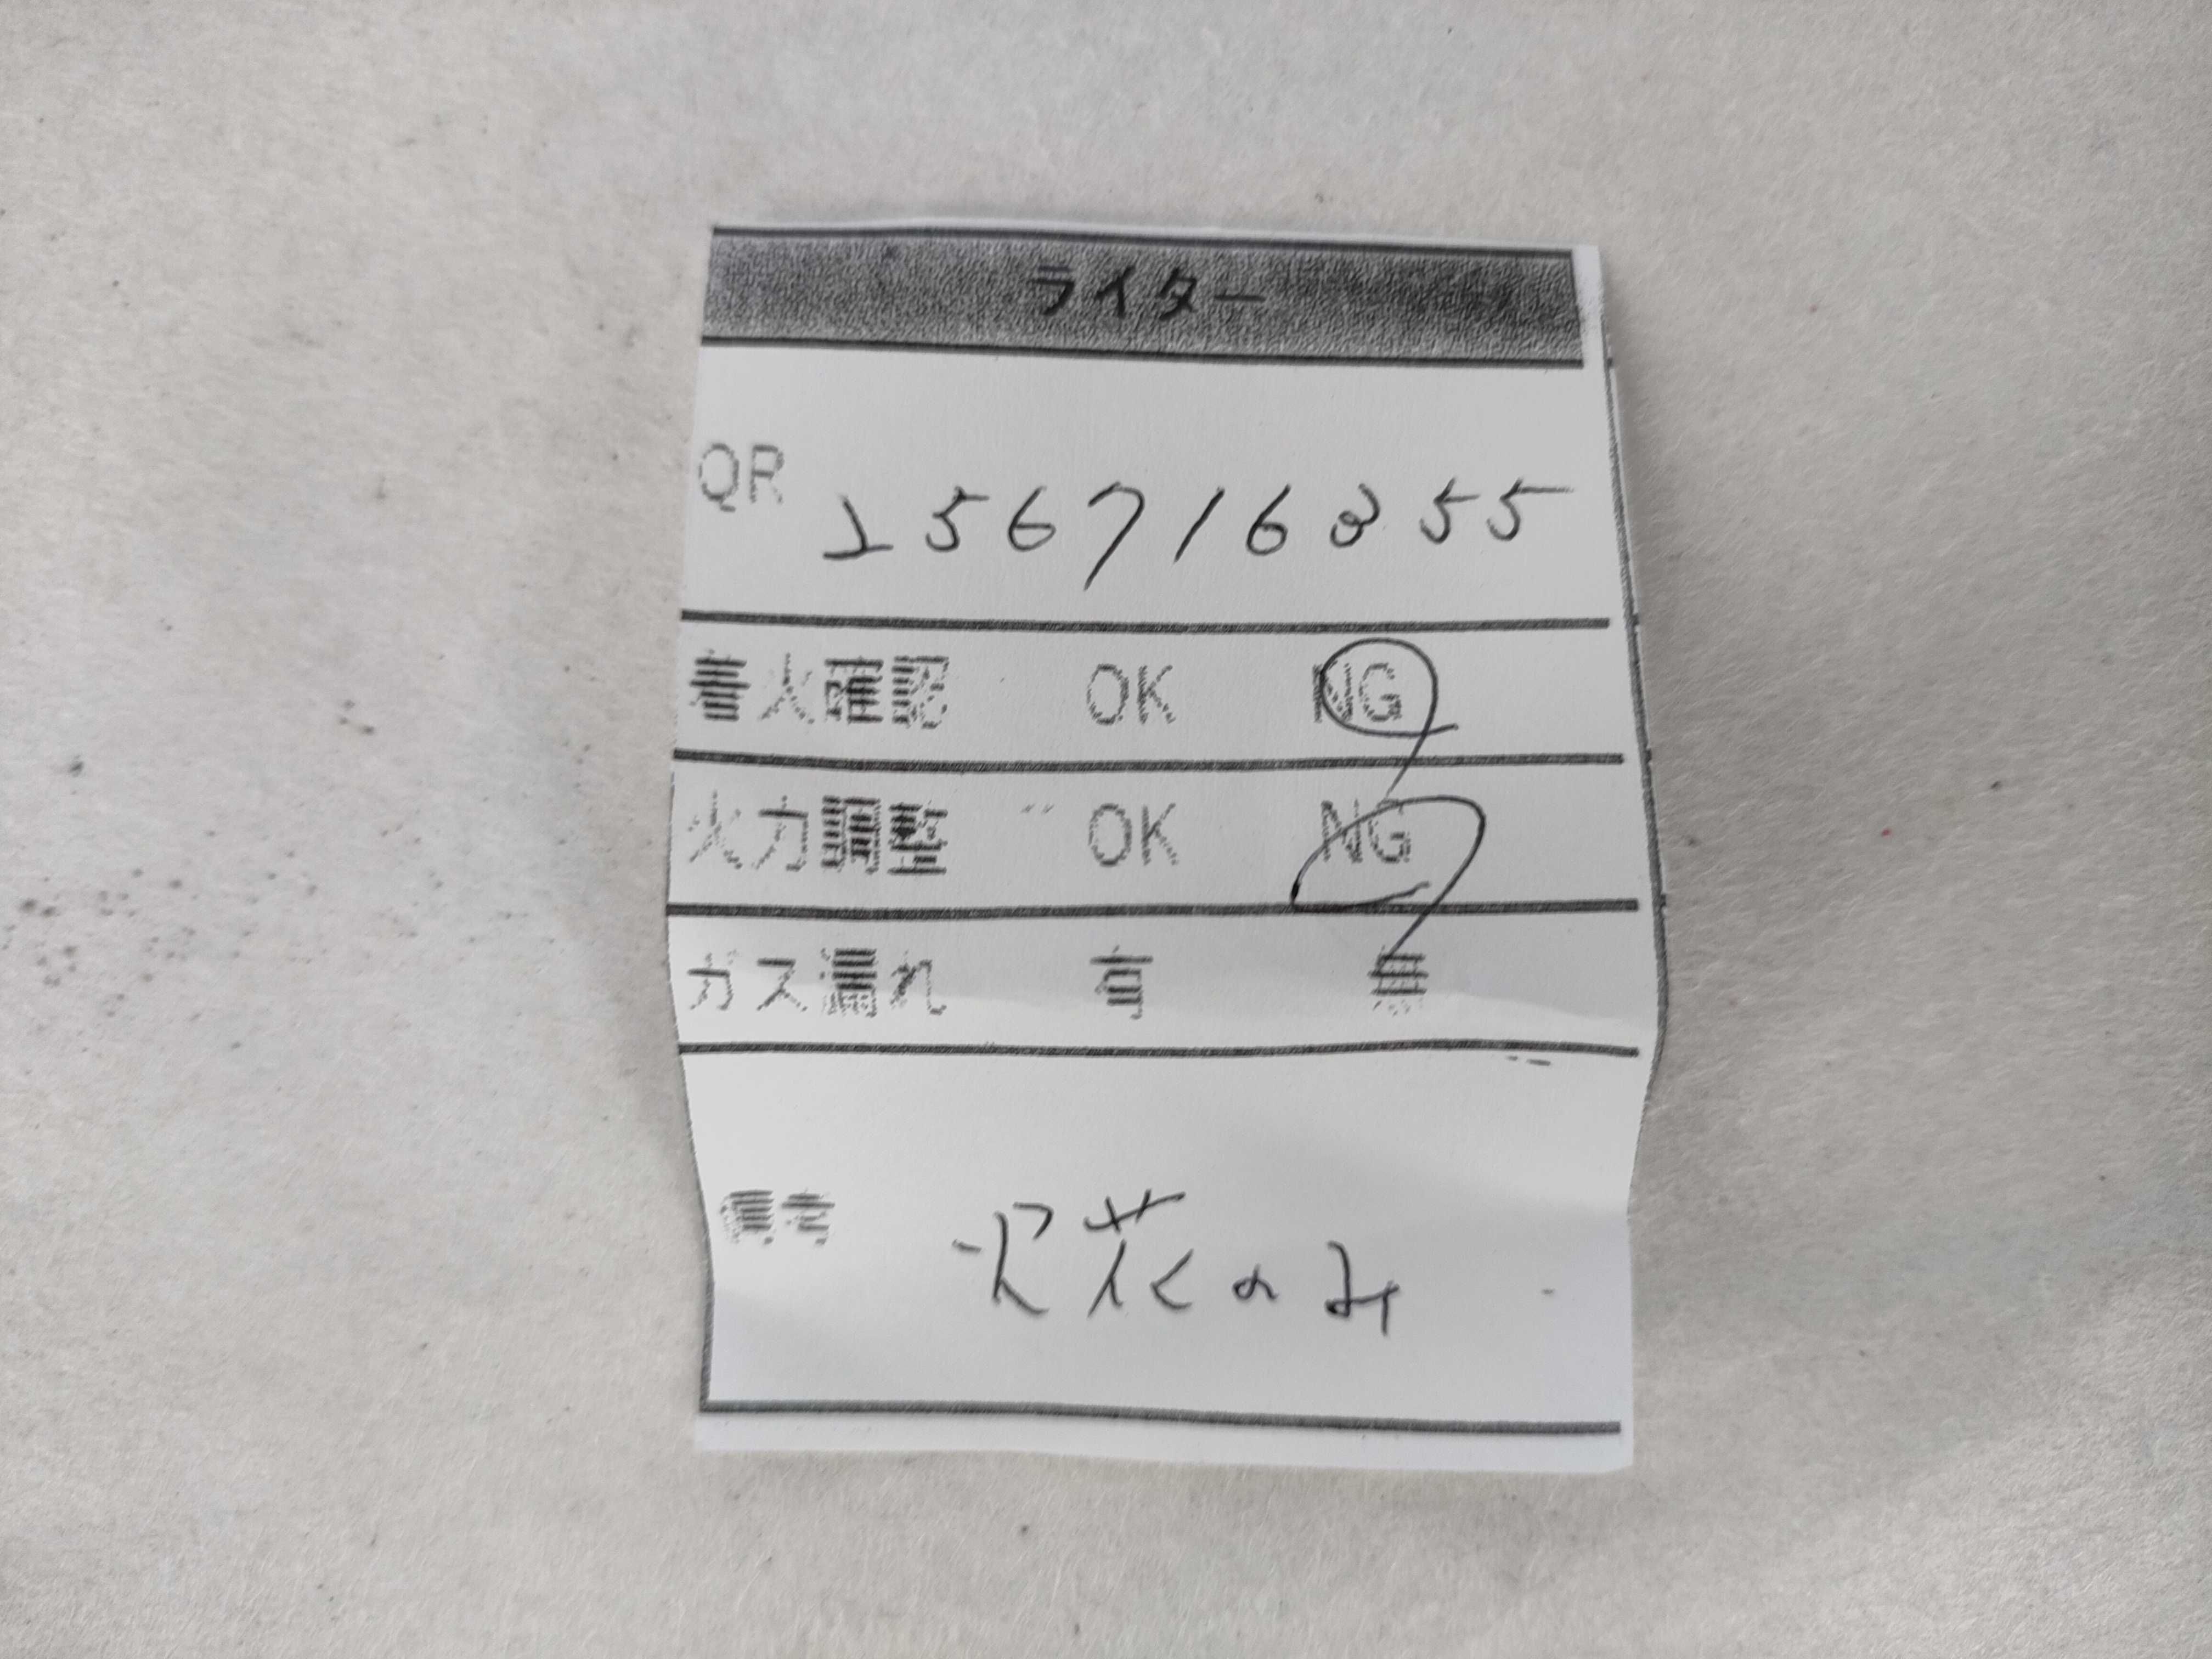 ライター
QR 156716355
着火確認 OK NG
火力調整 OK NG
ガス漏れ 有 無
備考 火花のみ